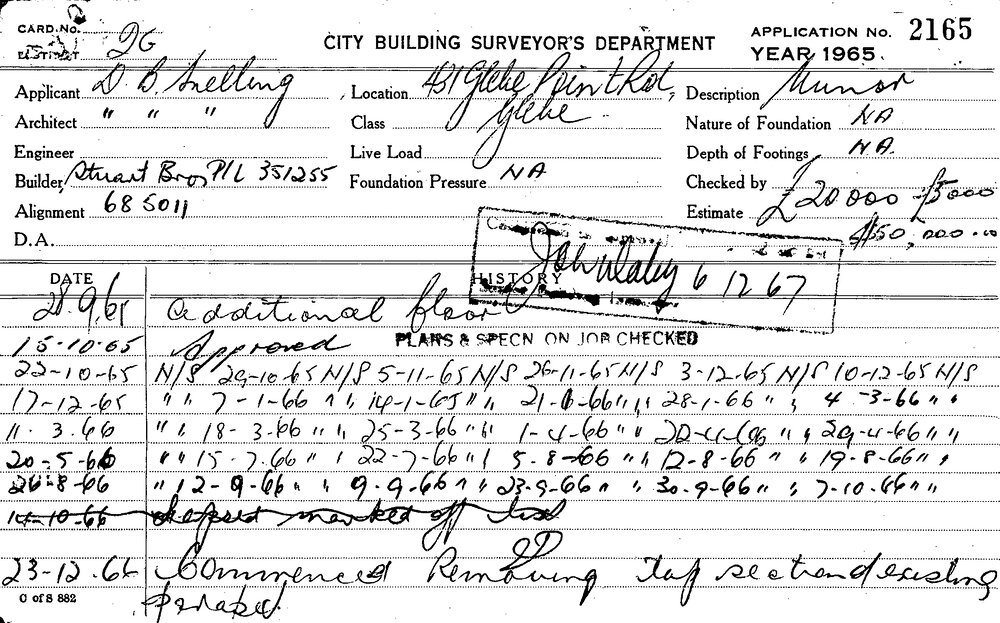 CARD No.
CITY BUILDING SURVEYOR'S DEPARTMENT
APPLICATION No. 2165
DISTRICT 2G
YEAR 1965.
Applicant D. B. Snelling
Location 431 Glebe Point Rd, Glebe
Description
Architect " " "
Class
Nature of Foundation NA
Engineer
Live Load
Depth of Footings NA.
Builder Stuart Bros P/L 351255
Foundation Pressure NA
Checked by
Alignment 685011
Estimate £20000 £5000
$150,000.00
D.A.
6 12 67
DATE
HISTORY
28.9.65 additional floor
15-10-65 Approved PLANS & SPECN ON JOB CHECKED
22-10-65 N/S 29-10-65 N/S 5-11-65 N/S 26-11-65 N/S 3-12-65 N/S 10-12-65 N/S
17-12-65 " " 7-1-66 " " 14-1-65 " " 21-1-66 " " 28-1-66 " " 4-3-66 " "
11.3.66 " " 18-3-66 " " 25-3-66 " " 1-4-66 " " 22-4-66 " " 29-4-66 " "
20-5-66 " " 15-7-66 " " 22-7-66 " " 5-8-66 " " 12-8-66 " " 19-8-66 " "
26-8-66 " " 2-9-66 " " 9-9-66 " " 23-9-66 " " 30-9-66 " " 7-10-66 " "
14-10-66 Lapsed marked off list
23-12-66 Commenced Removing top section existing
parapet.
C of S 882